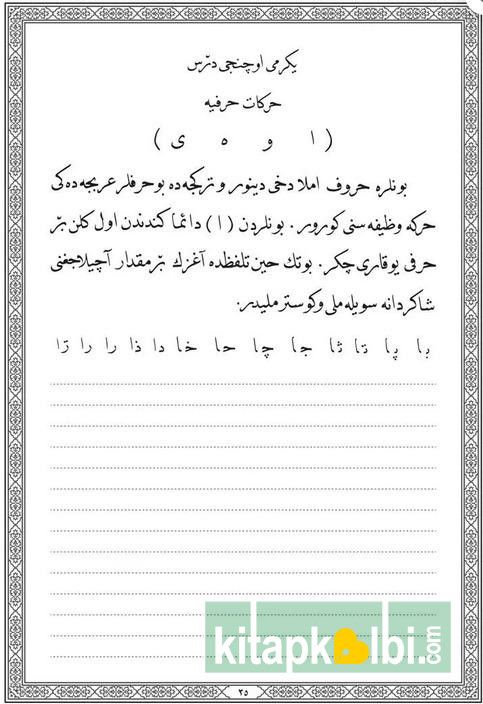 يكرمى اوچنجى درس
حركات حرفيه
( ا و ه ى )
بونلره حروف املا دخى دينور و تركجه ده بو حرفلر عربجه ده كى
حركه وظيفه سنى كورور . بونلردن ( ا ) دائما كندندن اول كلن بر
حرفى يوقارى چكر . بونك حين تلفظده آغزك بر مقدار آچيلاجغنى
شاكردانه سويله ملى و كوسترمليدر .
با پا تا ثا جا چا حا خا دا ذا را را زا
kitapkalbi.com
٢٥